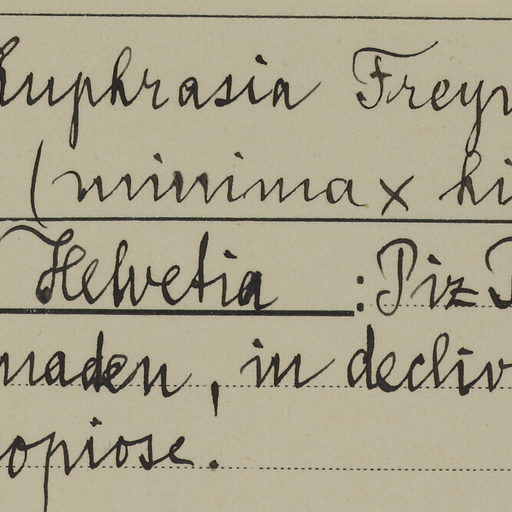 Euphrasia Freyn
(minima x hi
Helvetia : Piz
naden, in decliv
opiose.